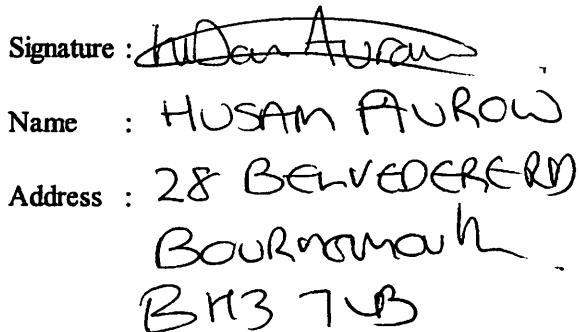 Signature : Husam Aurow
Name : HUSAM AUROW
Address : 28 BELVEDERE RD
BOURNEMOUTH
BH3 7LB